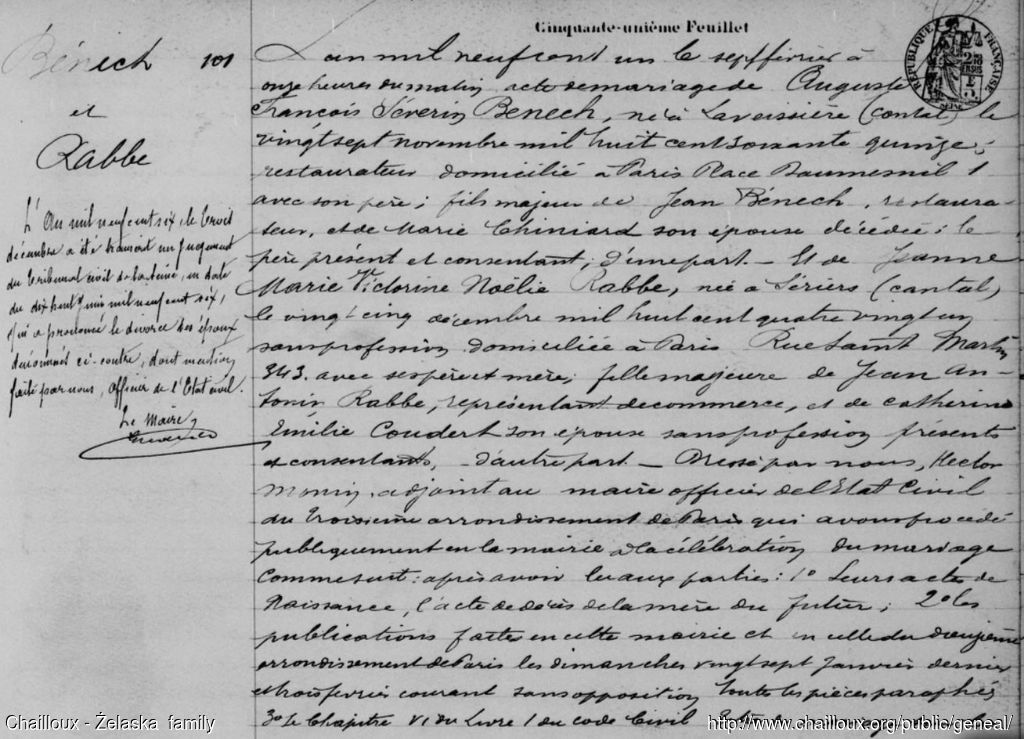 Cinquante-unième Feuillet
RÉPUBLIQUE FRANÇAISE
SEINE
Bénech 101
et
Rabbe
L'An mil neuf cent six, le trois
décembre a été transcrit un jugement
du tribunal civil de la Seine, en date
du dix huit Juin mil neuf cent six,
qui a prononcé le divorce des époux
dénommés ci-contre, dont mention
faite par nous, officier de l'Etat civil.
Le Maire
L'an mil neuf cent un le sept février à
onze heures du matin acte de mariage de Auguste
François Séverin Benech, né à Laveissière (cantal) le
vingt sept novembre mil huit cent soixante quinze;
restaurateur domicilié à Paris Place Baumesnil 1
avec son père; fils majeur de Jean Bénech, restaura-
teur, et de Marie Chiniard son épouse décédée; le
père présent et consentant; d'une part — Et de Jeanne
Marie Victorine Noëlie Rabbe, née à Sériers (cantal)
le vingt cinq décembre mil huit cent quatre vingt un
sans profession domiciliée à Paris Rue Saint Martin
343. avec ses père et mère; fille majeure de Jean An-
tonin Rabbe, représentant de commerce, et de Catherine
Emilie Coudert son épouse sans profession présents
et consentants, — d'autre part — Dressé par nous, Hector
Monin, adjoint au maire officier de l'Etat Civil
du troisième arrondissement de Paris qui avons procédé
publiquement en la mairie à la célébration du mariage
comme suit: après avoir lu aux parties: 1° Leurs actes de
Naissance, l'acte de décès de la mère du futur; 2° les
publications faites en cette mairie et en celle du deuxième
arrondissement de Paris les dimanches vingt sept Janvier dernier
et trois février courant sans opposition toutes les pièces paraphées
3° Le Chapitre VI du Livre 1 du code Civil
Chailloux - Želaska family
http://www.chailloux.org/public/geneal/